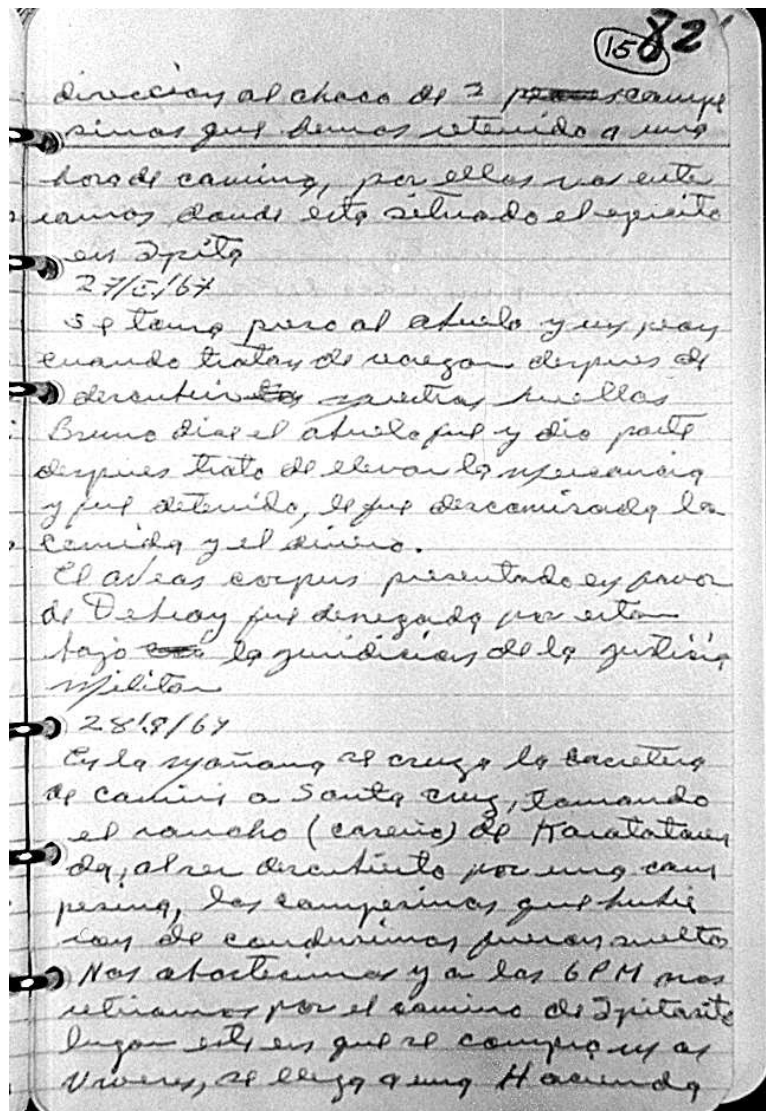 150 82
direccion al chaco de 2 campe
sinos que hemos retenido a una
hora de camino, por ellos nos ente
ramos donde esta situado el egercito
en Ipita
27/5/67
Se toma preso al abuelo y un peon
cuando tratan de despues de
descubrir nuestras huellas
Bruno dice el abuelo fue y dio parte
despues trato de llevar la mercancia
y fue detenido, le fue descomisada la
comida y el dinero.
El aveas corpus presentado en favor
de Debray fue denegado por estar
bajo la juridicion de la justicia
militar
En la mañana se cruza la carretera
de camiri a Santa Cruz, tomando
el rancho (caserio) de Karatataren
da, al ser descubierto por una cam
pesina, los campesinos que hubie
ron de conducirnos fueron sueltos
Nos abastecimos y a las 6 PM nos
retiramos por el camino de Ipitasito
lugar este en que se compro
viveres, se llega a una Hacienda